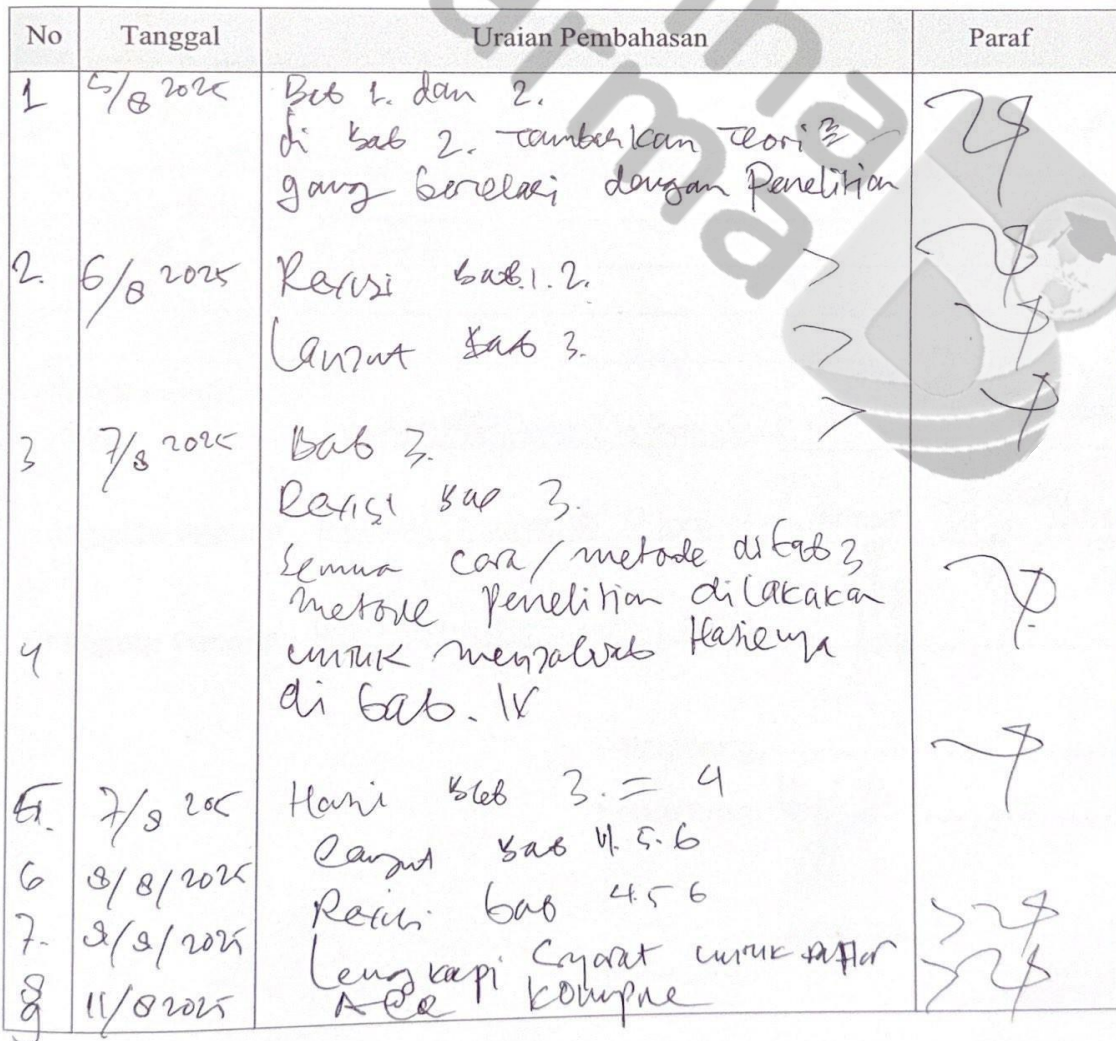 No Tanggal Uraian Pembahasan Paraf
1 5/8 2025 Bab 1. dan 2.
di bab 2. tambahkan teori2
yang berelasi dengan Penelitian
2. 6/8 2025 Revisi bab.1.2.
Lanjut bab 3.
3 7/8 2025 Bab 3.
Revisi bab 3.
Semua cara/metode di bab 3
metode penelitian dilakukan
4 untuk menjawab Hasilnya
di bab. IV
5. 7/8 205 Hasil bab 3. = 4
Lanjut bab 4.5.6
6 8/8/2025 Revisi bab 4.5 6
7. 9/8/2025 Lengkapi Syarat untuk daftar
8 11/8 2025 Acc kompre
9